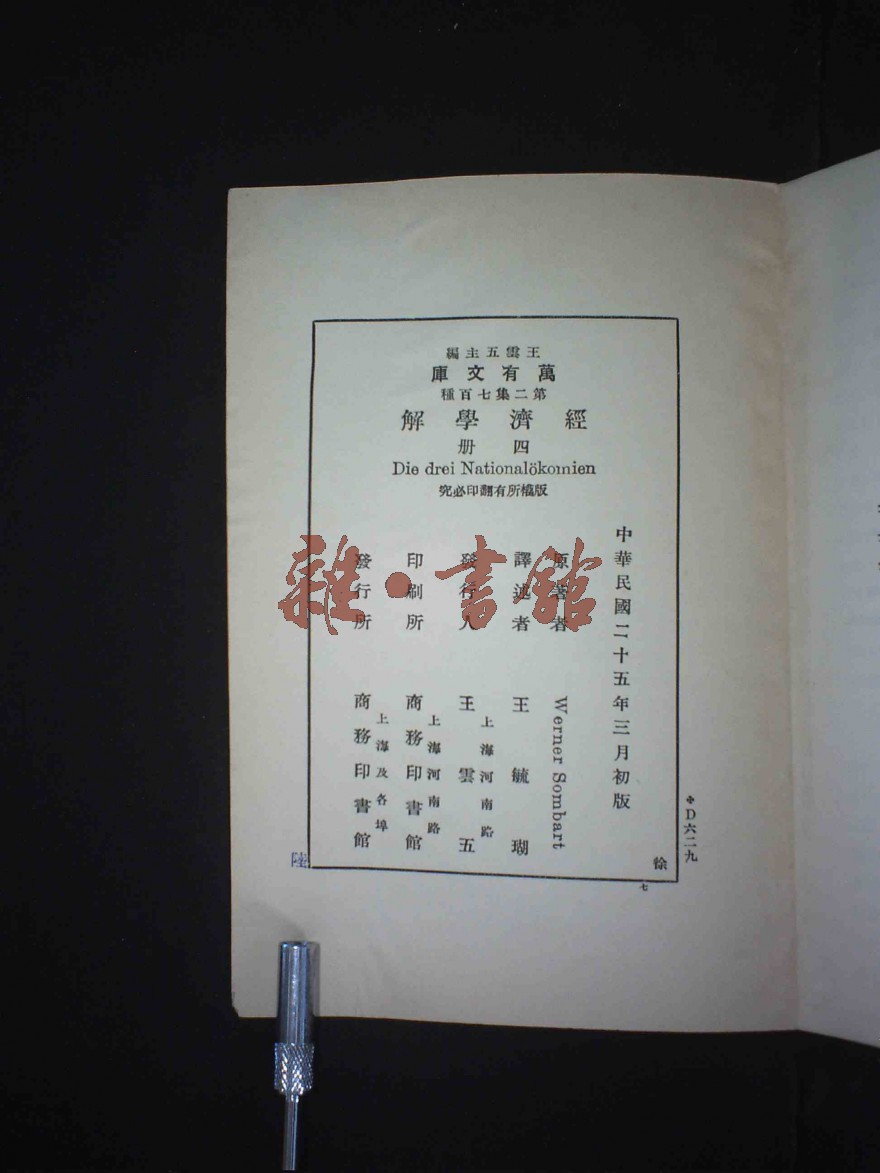 王雲五主編
萬有文庫
第二集七百種
經濟學解
四册
Die drei Nationalökomien
版權所有翻印必究
中華民國二十五年三月初版
原著者 Werner Sombart
譯述者 王毓瑚
發行人 王雲五
上海河南路
印刷所 商務印書館
上海河南路
發行所 商務印書館
上海及各埠
＊D六二九
徐
七
雜·書館